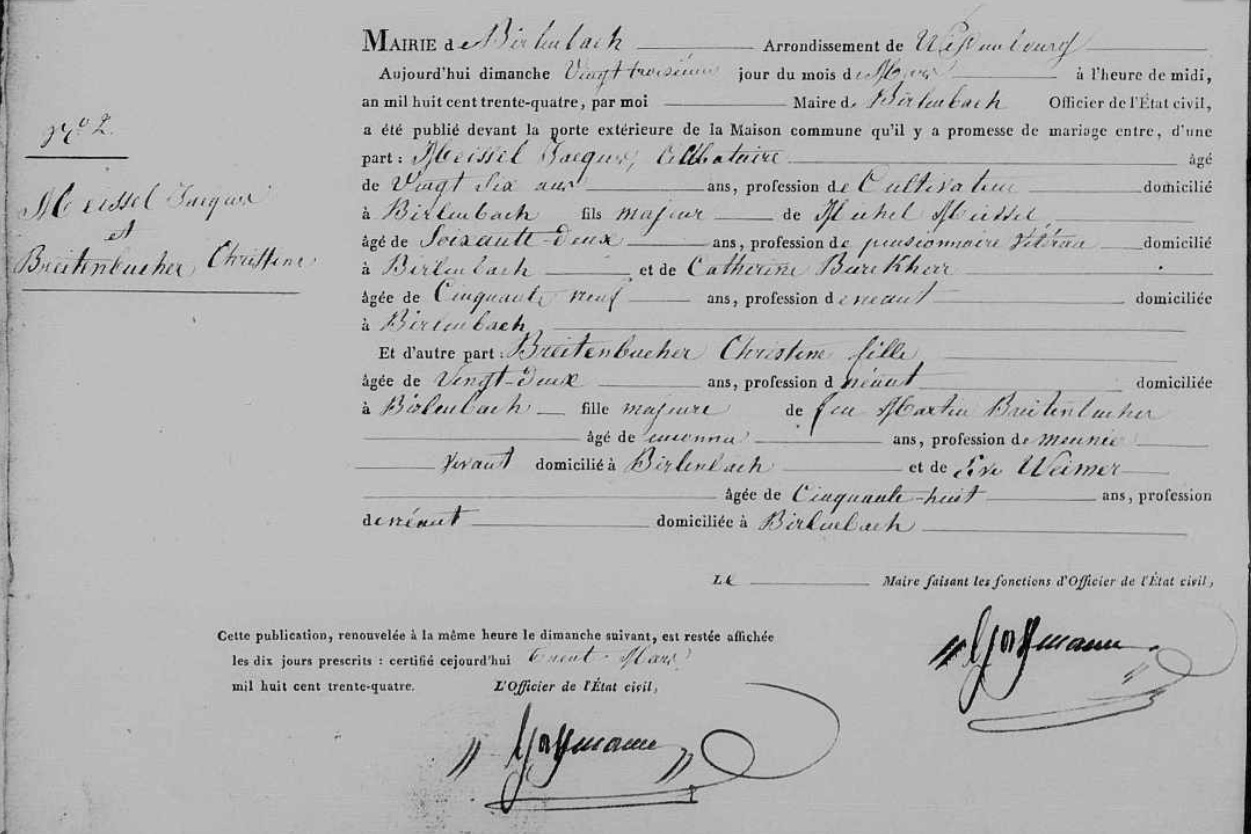 MAIRIE de Birlenbach Arrondissement de Wissembourg
Aujourd'hui dimanche Vingt troisième jour du mois de Mars à l'heure de midi,
an mil huit cent trente-quatre, par moi Maire de Birlenbach Officier de l'État civil,
N° 2.
a été publié devant la porte extérieure de la Maison commune qu'il y a promesse de mariage entre, d'une
part : Meissel Jacques, Célibataire âgé
de Vingt Six ans ans, profession de Cultivateur domicilié
Meissel Jacques
et
Breitenbucher Christine
à Birlenbach fils majeur de Michel Meissel
âgé de Soixante-Deux ans, profession de pensionnaire vétéran domicilié
à Birlenbach et de Catherine Burckherr
âgée de Cinquante neuf ans, profession de néant domiciliée
à Birlenbach
Et d'autre part : Breitenbucher Christine fille
âgée de Vingt-Deux ans, profession d néant domiciliée
à Birlenbach fille majeure de feu Martin Breitenbucher
âgé de inconnu ans, profession de meunier
vivant domicilié à Birlenbach et de Eve Weimer
âgée de Cinquante-huit ans, profession
de néant domiciliée à Birlenbach
LE Maire faisant les fonctions d'Officier de l'État civil,
Cette publication, renouvelée à la même heure le dimanche suivant, est restée affichée
les dix jours prescrits : certifié cejourd'hui Trent Mars
mil huit cent trente-quatre. L'Officier de l'État civil,